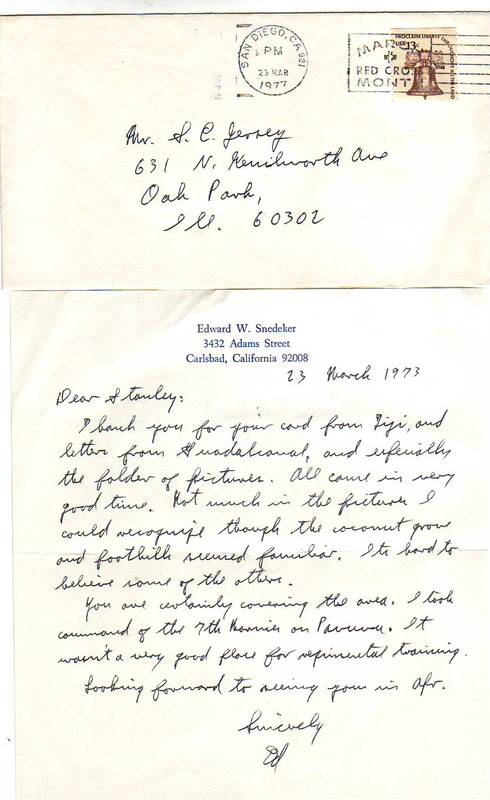 SAN DIEGO, CA 921
PM
23 MAR
1977
MAR
RED CROSS
MONT
PROCLAIM LIBERTY THROUGHOUT ALL THE LAND
USA 13c
Mr. S. C. Jersey
631 N. Kenilworth Ave
Oak Park,
Ill. 60302
Edward W. Snedeker
3432 Adams Street
Carlsbad, California 92008
23 March 1973
Dear Stanley:
Thank you for your card from Fiji, and
letters from Guadalcanal, and especially
the folder of pictures. All came in very
good time. Not much in the pictures I
could recognize though the coconut grove
and foothills seemed familiar. Its hard to
believe some of the others.
You are certainly covering the area. I took
command of the 7th Marines on Pavuvu. It
wasn't a very good place for regimental training.
Looking forward to seeing you in Apr.
Sincerely
Ed